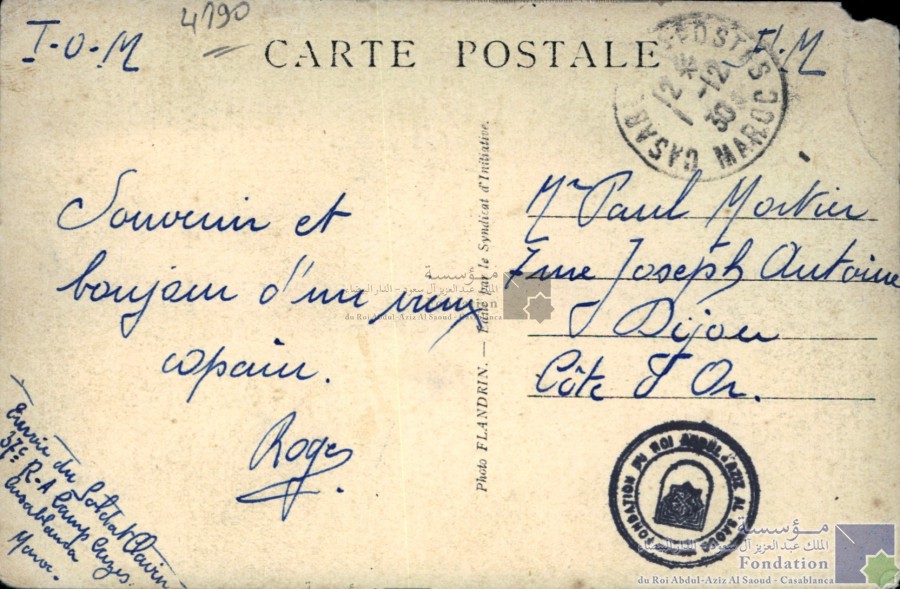 4190
I-O-M
CARTE POSTALE
F-M
CASABLANCA-POSTES
12
1-12
30
MAROC
Souvenir et
bonjour d'un vieux
copain.
Roger
Envoi du Soldat
37e R-A Camp
Casablanca
Maroc.
Photo FLANDRIN. — Édité par le Syndicat d'Initiative.
Mr Paul Mortier
7 rue Joseph Antoine
Dijon
Côte d'Or.
FONDATION DU ROI ABDUL-AZIZ AL SAOUD
مؤسسة
الملك عبد العزيز آل سعود - الدار البيضاء
Fondation
du Roi Abdul-Aziz Al Saoud - Casablanca
مؤسسة
الملك عبد العزيز آل سعود - الدار البيضاء
Fondation
du Roi Abdul-Aziz Al Saoud - Casablanca